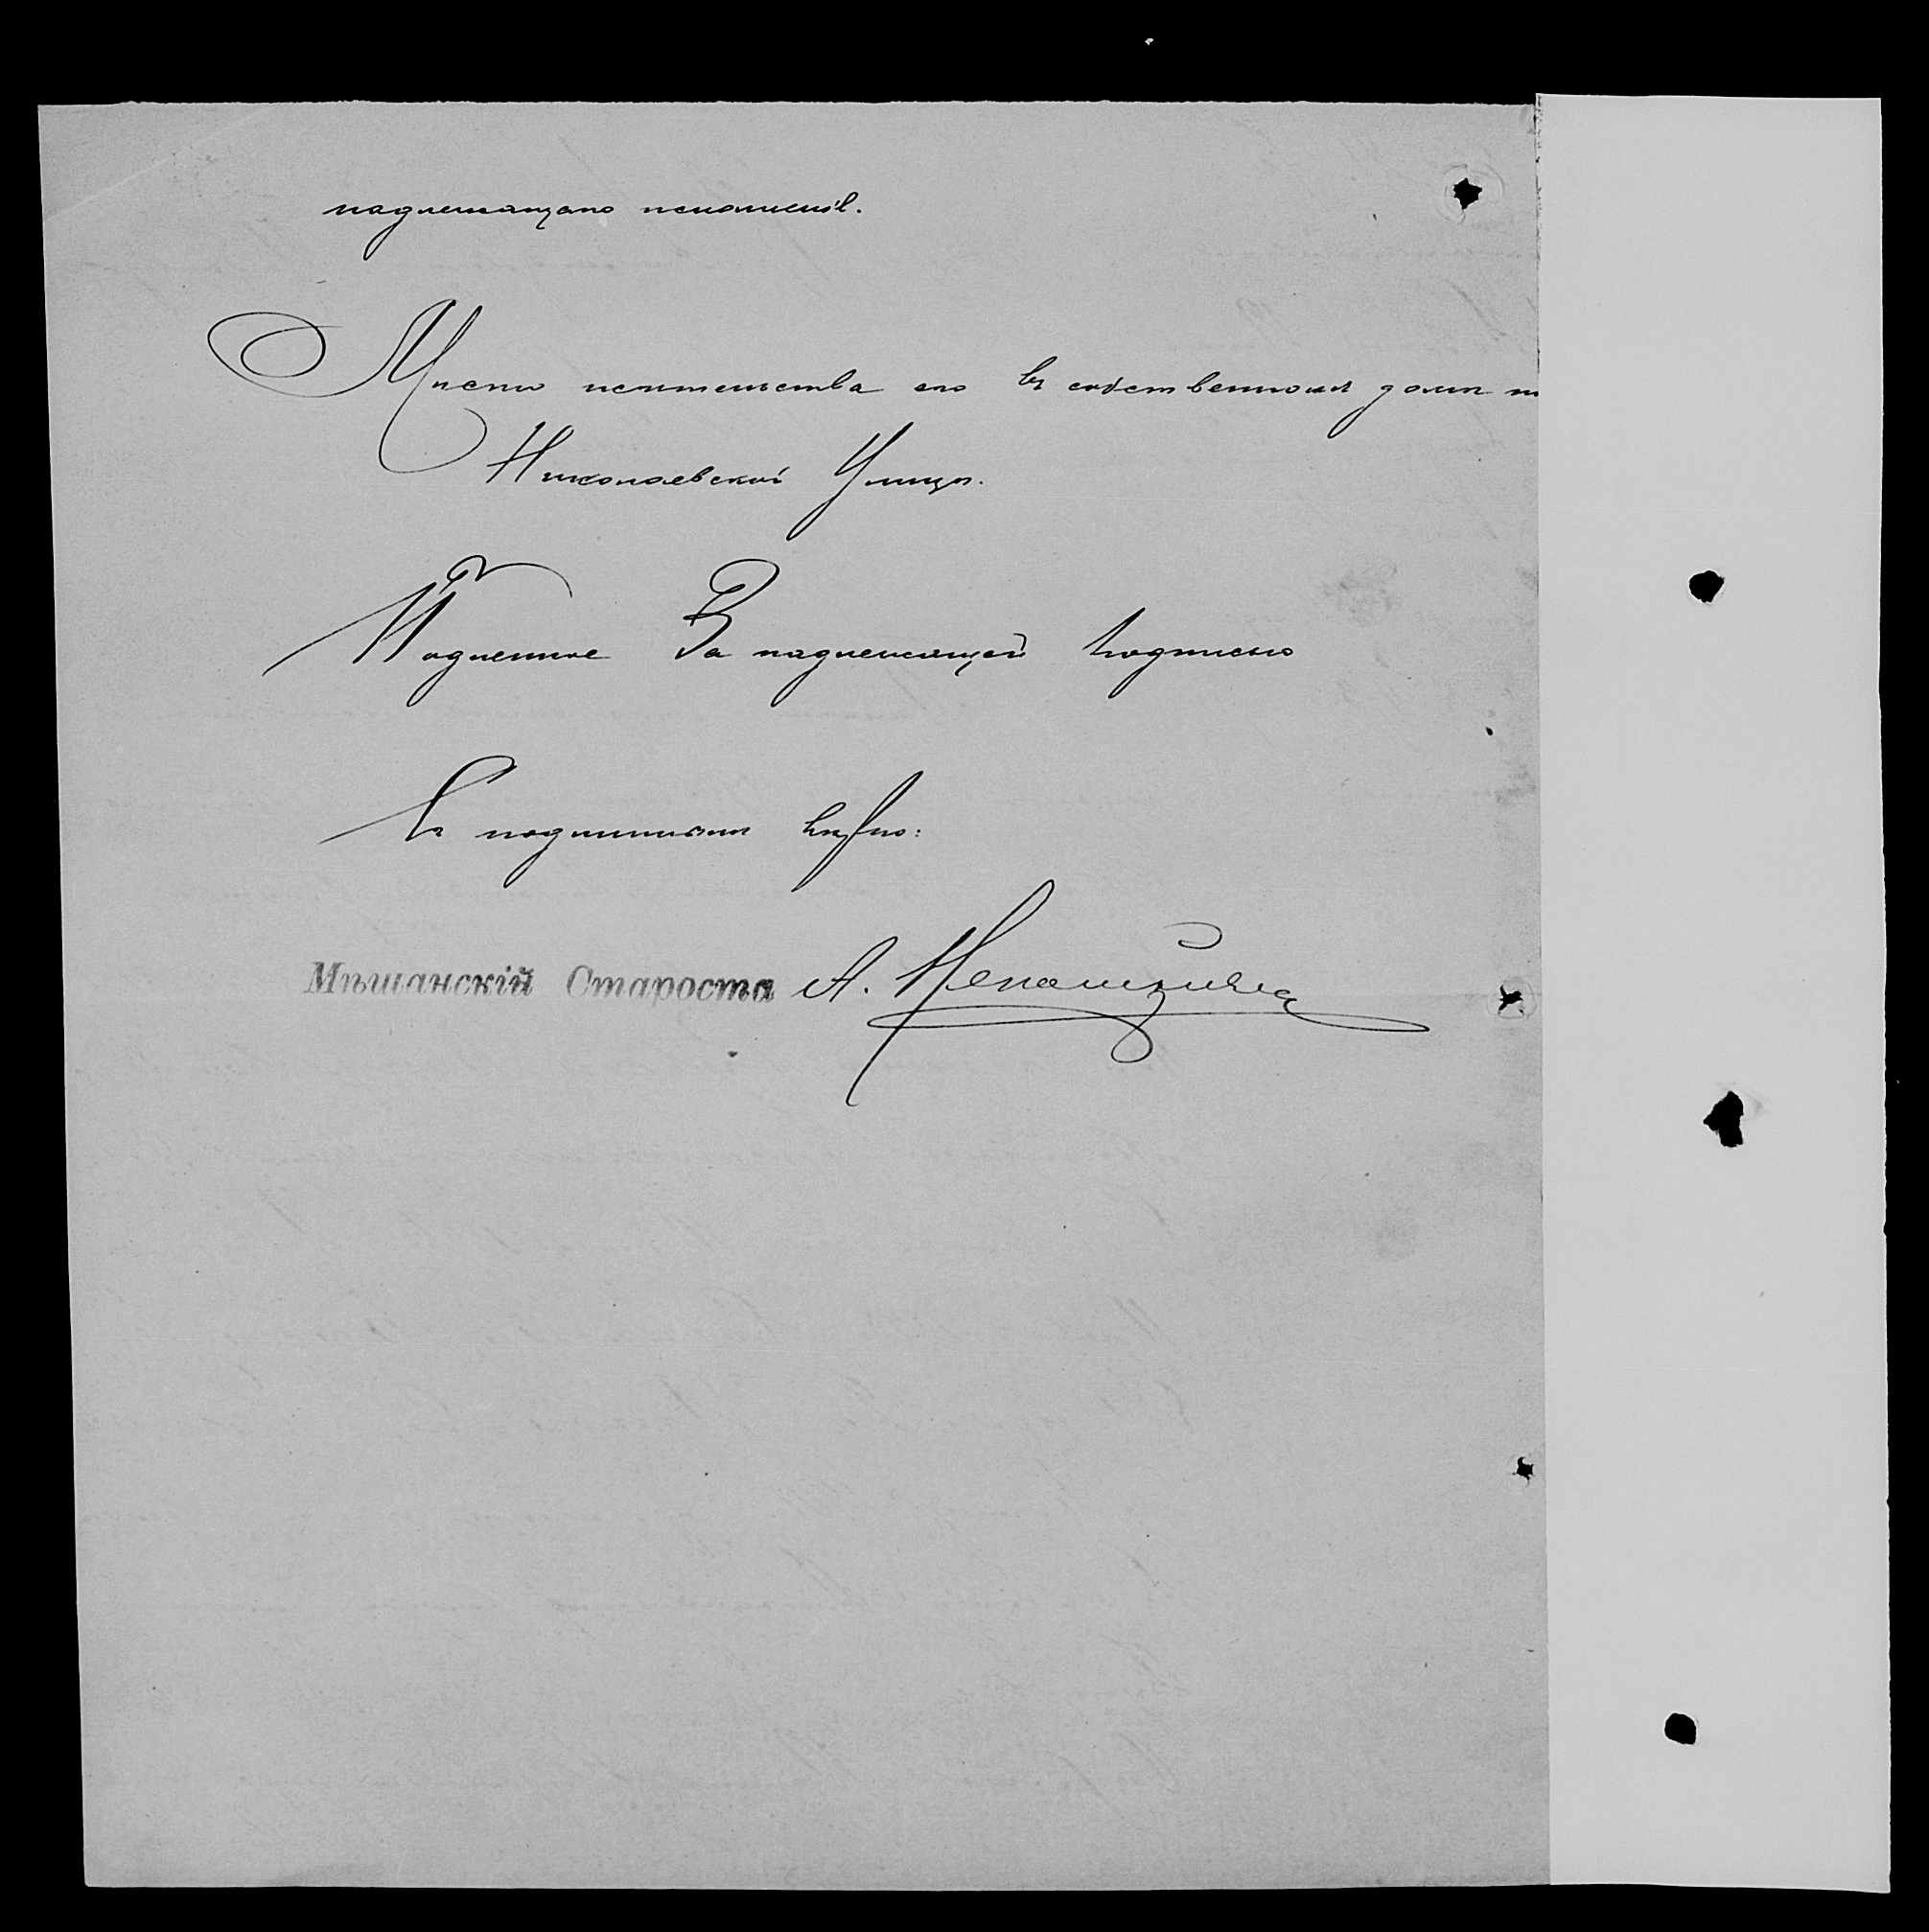 надлежащаго исполненiя.
Мѣсто жительства его въ собственномъ домѣ на
Николаевской Улицѣ.
Подленное За надлежащей подписью
Съ подлиннымъ вѣрно:
Мѣщанскій Староста А.